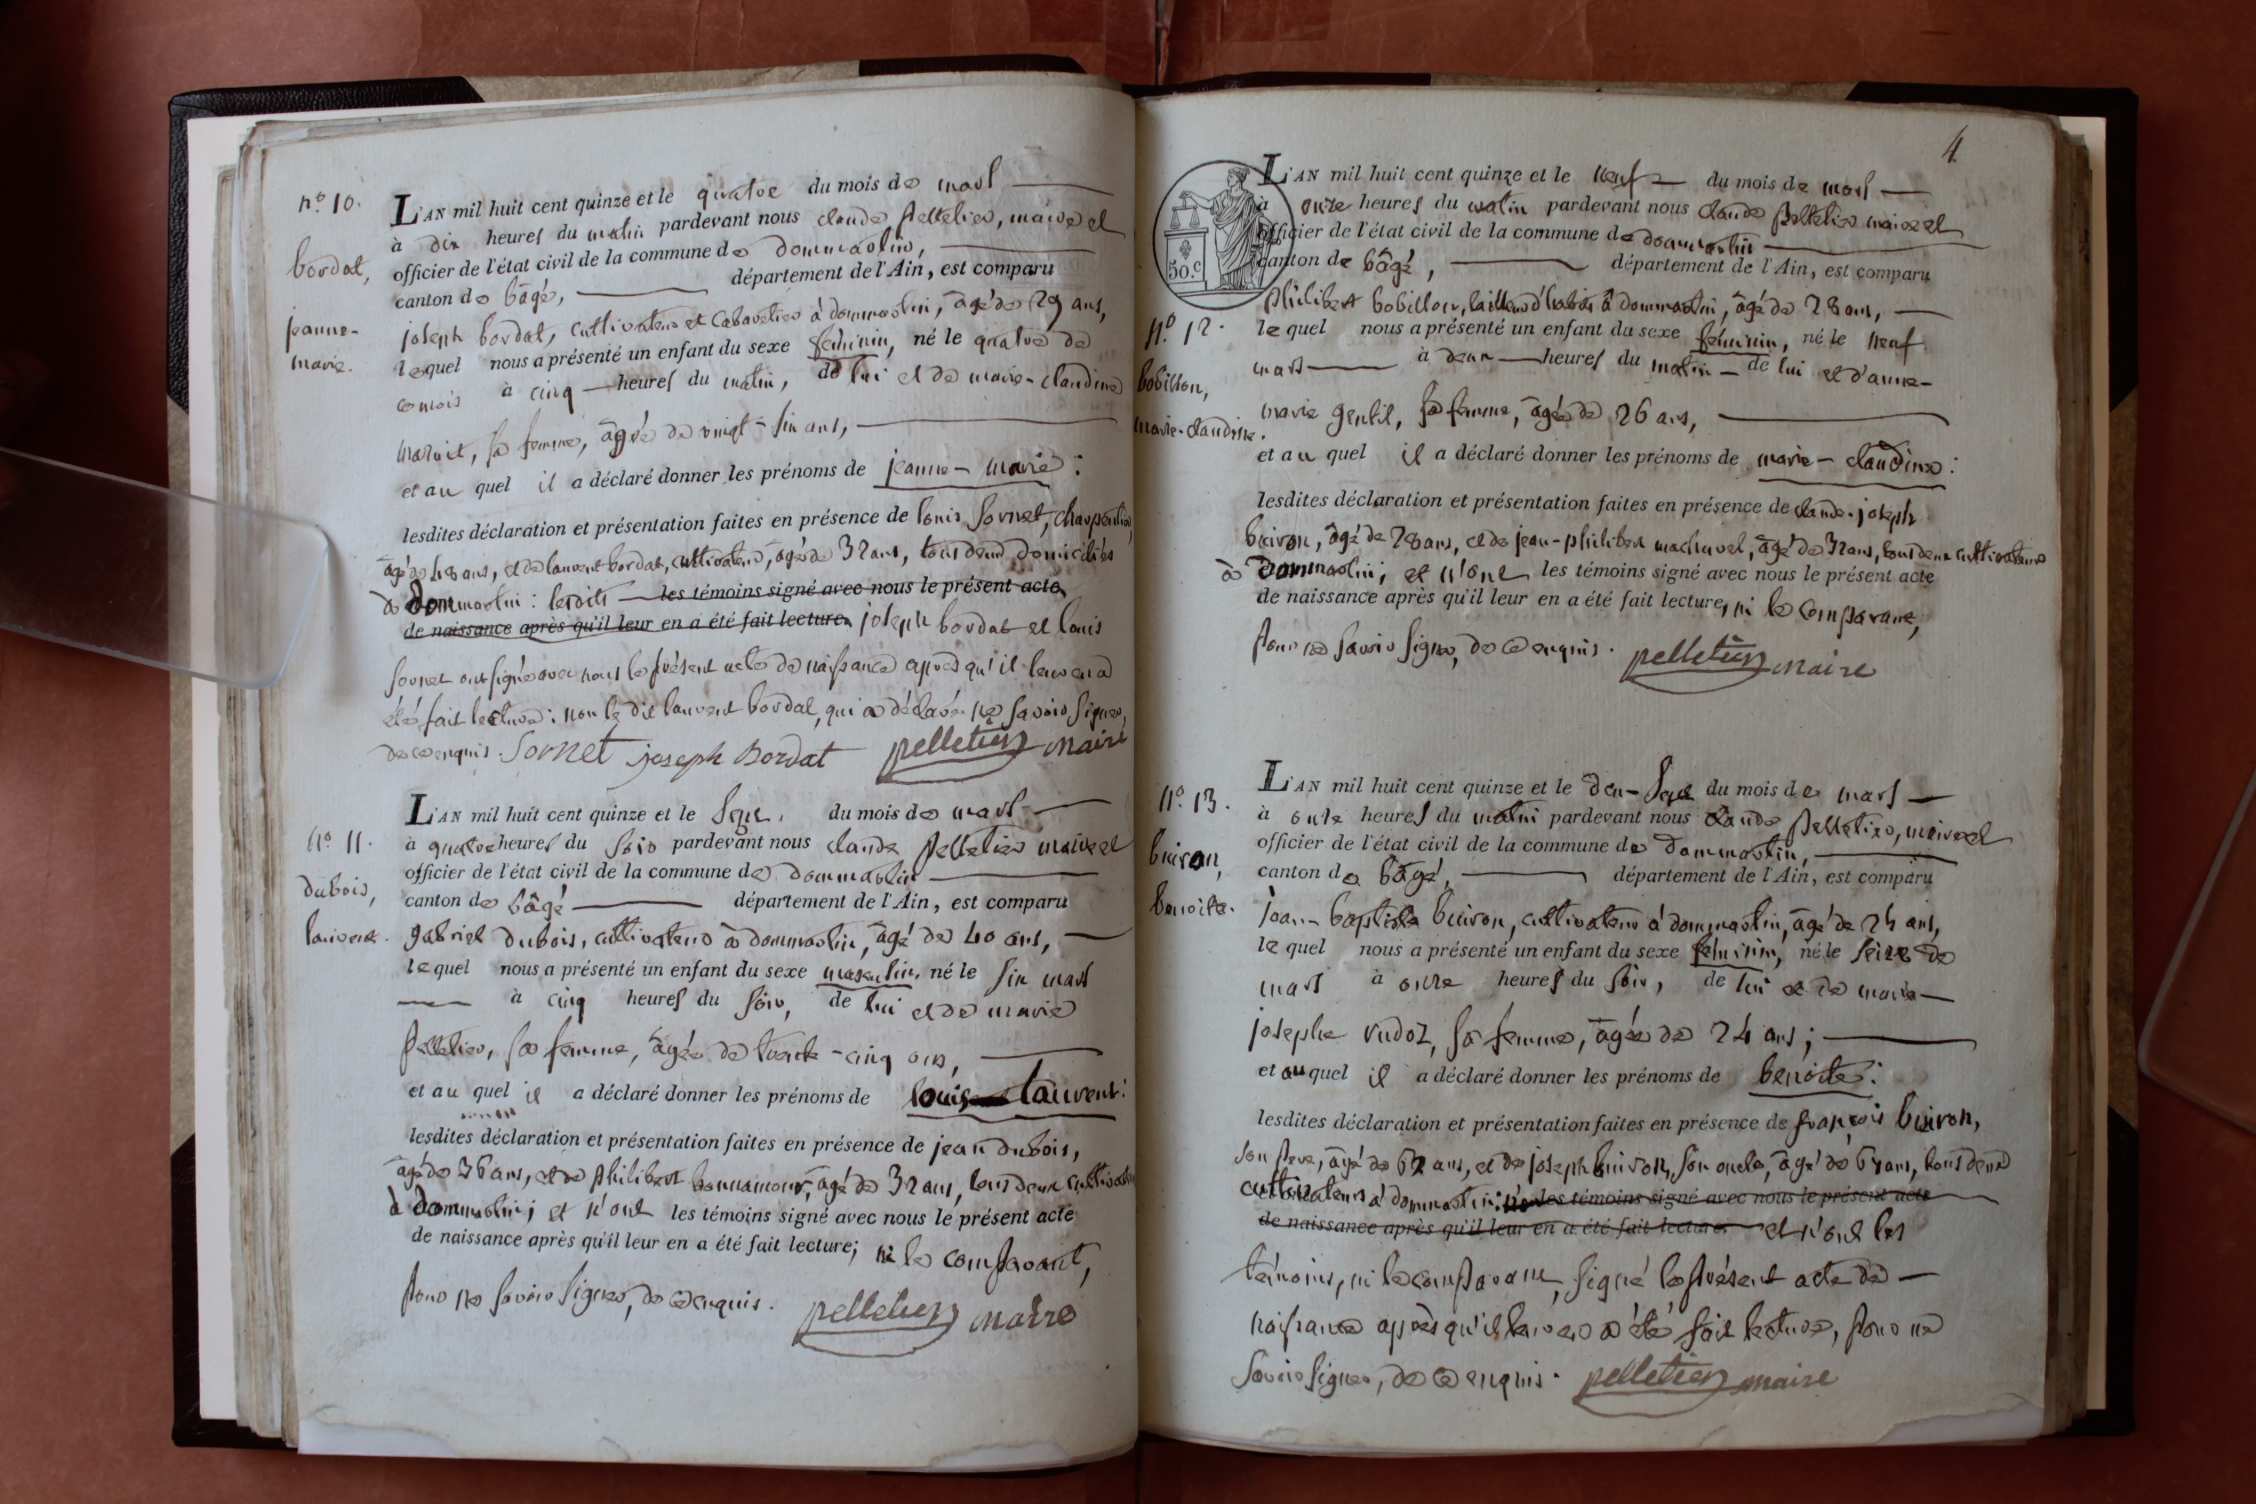 n.º 10.
bordat,
jeanne-
marie.
L'AN mil huit cent quinze et le quatre du mois de mars
à dix heures du matin pardevant nous claude pelletier, maire et
officier de l'état civil de la commune de dommartin,
canton de bâgé, département de l'Ain, est comparu
joseph bordat, cultivateur et cabaretier à dommartin, âgé de 29 ans,
lequel nous a présenté un enfant du sexe féminin, né le quatre de
ce mois à cinq heures du matin, de lui et de marie-claudine
sa femme, âgée de vingt-six ans,
et au quel il a déclaré donner les prénoms de jeanne-marie:
lesdites déclaration et présentation faites en présence de louis sornet, charpentier,
âgé de 48 ans, et de laurent bordat, cultivateur, âgé de 32 ans, tous deux domiciliés
à dommartin: lesdits les témoins signé avec nous le présent acte
de naissance après qu'il leur en a été fait lecture. joseph bordat et louis
sornet ont signé avec nous le présent acte de naissance après qu'il leur en a
été fait lecture: non le dit laurent bordat, qui a déclaré ne savoir signer,
de ce enquis. Sornet joseph Bordat pelletier maire
n.º 11.
dubois,
laurent.
L'AN mil huit cent quinze et le sept. du mois de mars
à quatre heures du soir pardevant nous claude pelletier maire et
officier de l'état civil de la commune de dommartin
canton de bâgé département de l'Ain, est comparu
gabriel dubois, cultivateur à dommartin, âgé de 40 ans,
lequel nous a présenté un enfant du sexe masculin, né le six mars
à cinq heures du soir, de lui et de marie
pelletier, sa femme, âgée de trente-cinq ans,
et au quel il a déclaré donner les prénoms de louis laurent:
lesdites déclaration et présentation faites en présence de jean dubois,
âgé de 36 ans, et de philibert bonnamour, âgé de 32 ans, tous deux cultivateurs
à dommartin; et n'ont les témoins signé avec nous le présent acte
de naissance après qu'il leur en a été fait lecture; ni le comparant,
pour ne savoir signer, de ce enquis. pelletier maire
4
50.c
n.º 12.
bobillon,
marie-claudine.
L'AN mil huit cent quinze et le neuf du mois de mars
à onze heures du matin pardevant nous claude pelletier maire et
officier de l'état civil de la commune de dommartin
canton de bâgé, département de l'Ain, est comparu
philibert bobillon, tailleur d'habits à dommartin, âgé de 28 ans,
lequel nous a présenté un enfant du sexe féminin, né le neuf
mars à deux heures du matin de lui et d'anne-
marie gentil, sa femme, âgée de 26 ans,
et au quel il a déclaré donner les prénoms de marie-claudine:
lesdites déclaration et présentation faites en présence de claude-joseph
buiron, âgé de 28 ans, et de jean-philibert machurel, âgé de 32 ans, tous deux cultivateurs
à dommartin; et n'ont les témoins signé avec nous le présent acte
de naissance après qu'il leur en a été fait lecture, ni le comparant,
pour ne savoir signer, de ce enquis. pelletier maire
n.º 13.
buiron,
benoite.
L'AN mil huit cent quinze et le dix-sept du mois de mars
à onze heures du matin pardevant nous claude pelletier, maire et
officier de l'état civil de la commune de dommartin,
canton de bâgé, département de l'Ain, est comparu
jean-baptiste buiron, cultivateur à dommartin, âgé de 25 ans,
lequel nous a présenté un enfant du sexe féminin, né le seize de
mars à onze heures du soir, de lui et de marie
josephe rudoz, sa femme, âgée de 24 ans;
et au quel il a déclaré donner les prénoms de benoite:
lesdites déclaration et présentation faites en présence de françois buiron,
son père, âgé de 62 ans, et de joseph buiron, son oncle, âgé de ans, tous deux
cultivateurs à dommartin: les témoins signé avec nous le présent acte
de naissance après qu'il leur en a été fait lecture. et n'ont les
témoins, ni le comparant, signé le présent acte de
naissance après qu'il leur en a été fait lecture, pour ne
savoir signer, de ce enquis. pelletier maire